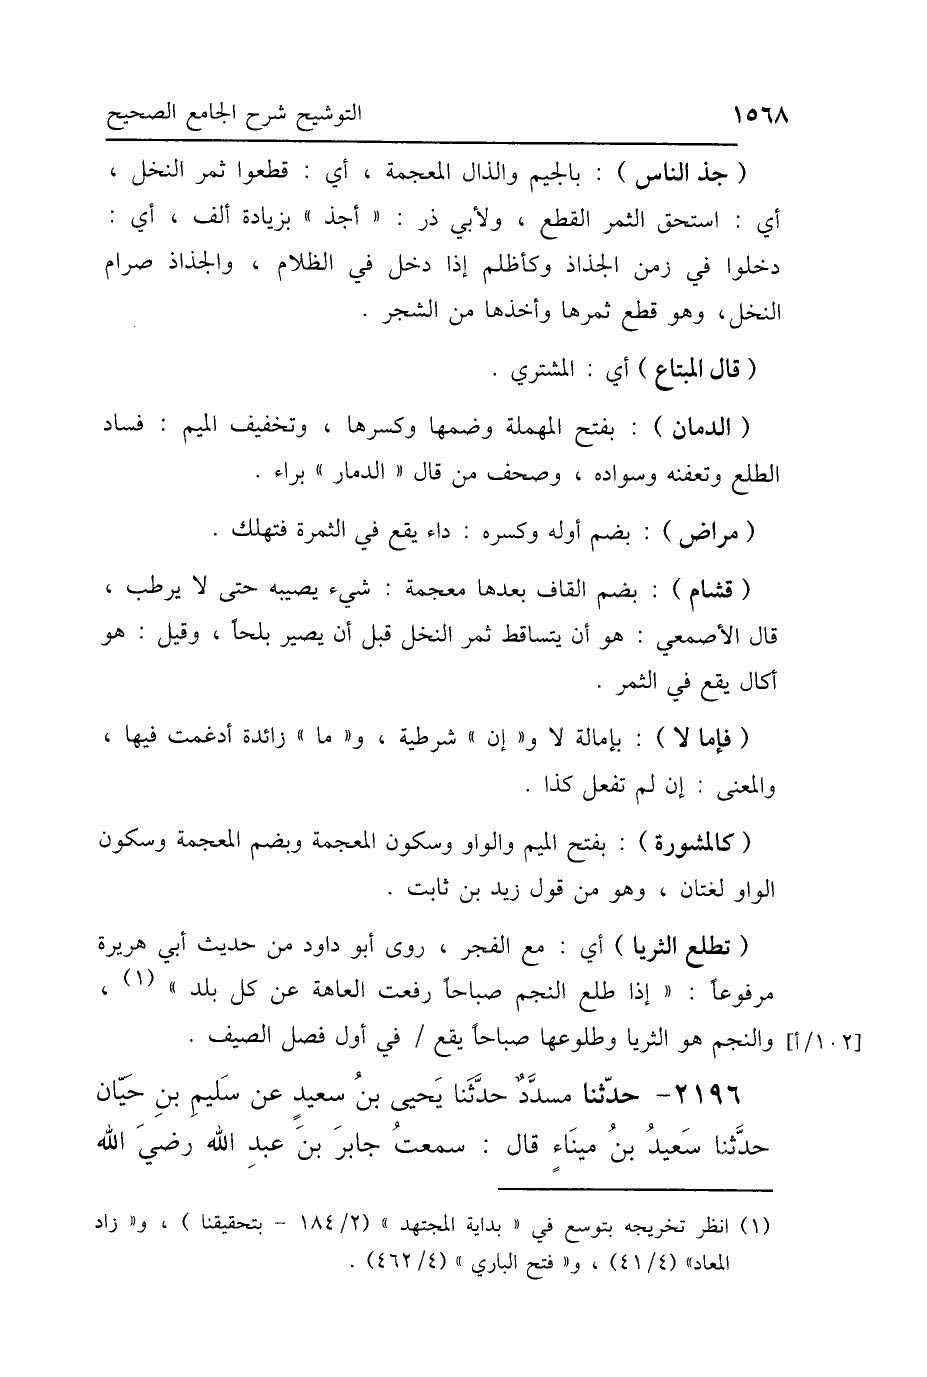 ١٥٦٨ التوشيح شرح الجامع الصحيح
( جذ الناس ) : بالجيم والذال المعجمة ، أي : قطعوا ثمر النخل ،
أي : استحق الثمر القطع ، ولأبي ذر : « أجذ » بزيادة ألف ، أي :
دخلوا في زمن الجذاذ وكأظلم إذا دخل في الظلام ، والجذاذ صرام
النخل، وهو قطع ثمرها وأخذها من الشجر .
( قال المبتاع ) أي : المشتري .
( الدمان ) : بفتح المهملة وضمها وكسرها ، وتخفيف الميم : فساد
الطلع وتعفنه وسواده ، وصحف من قال « الدمار » براء .
( مراض ) : بضم أوله وكسره : داء يقع في الثمرة فتهلك .
( قشام ) : بضم القاف بعدها معجمة : شيء يصيبه حتى لا يرطب ،
قال الأصمعي : هو أن يتساقط ثمر النخل قبل أن يصير بلحاً ، وقيل : هو
أكال يقع في الثمر .
( فإما لا ) : بإمالة لا و« إن » شرطية ، و« ما » زائدة أدغمت فيها ،
والمعنى : إن لم تفعل كذا .
( كالمشورة ) : بفتح الميم والواو وسكون المعجمة وبضم المعجمة وسكون
الواو لغتان ، وهو من قول زيد بن ثابت .
( تطلع الثريا ) أي : مع الفجر ، روى أبو داود من حديث أبي هريرة
مرفوعاً : « إذا طلع النجم صباحاً رفعت العاهة عن كل بلد » (١) ،
[١٠٢/أ] والنجم هو الثريا وطلوعها صباحاً يقع / في أول فصل الصيف .
٢١٩٦- حدّثنا مسدَّدٌ حدَّثَنا يَحيى بنُ سعيدٍ عن سَليمِ بنِ حَيّان
حدَّثنا سَعيدُ بنُ ميناءٍ قال : سمعتُ جابرَ بنَ عبدِ الله رضيَ الله
(١) انظر تخريجه بتوسع في « بداية المجتهد » (١٨٤/٢ - بتحقيقنا ) ، و« زاد
المعاد» (٤١/٤) ، و« فتح الباري » (٤٦٢/٤) .